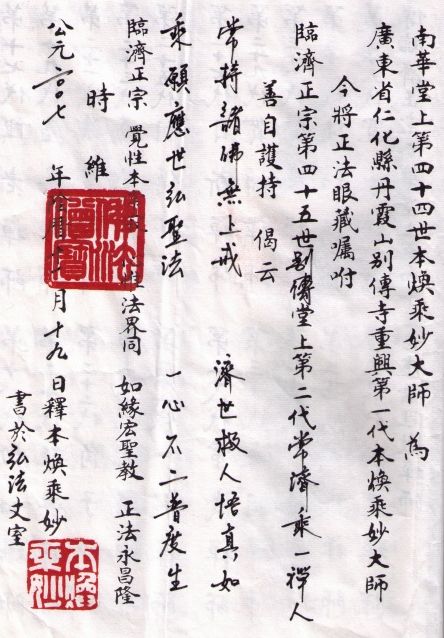 南華堂上第四十四世本煥乘妙大師 為
廣東省仁化縣丹霞山别傳寺重興第一代本煥乘妙大師
今將正法眼藏嘱咐
臨濟正宗第四十五世别傳堂上第二代常濟乘一禪人
善自護持 偈云
常持諸佛無上戒 濟世拯人悟真如
乘願應世弘聖法 一心不二普度生
臨濟正宗 覺性本 法界同 如緣宏聖教 正法永昌隆
時維
公元二〇〇七 年 月十九日釋本煥乘妙
書於弘法丈室
佛法僧寶
本煥乘妙